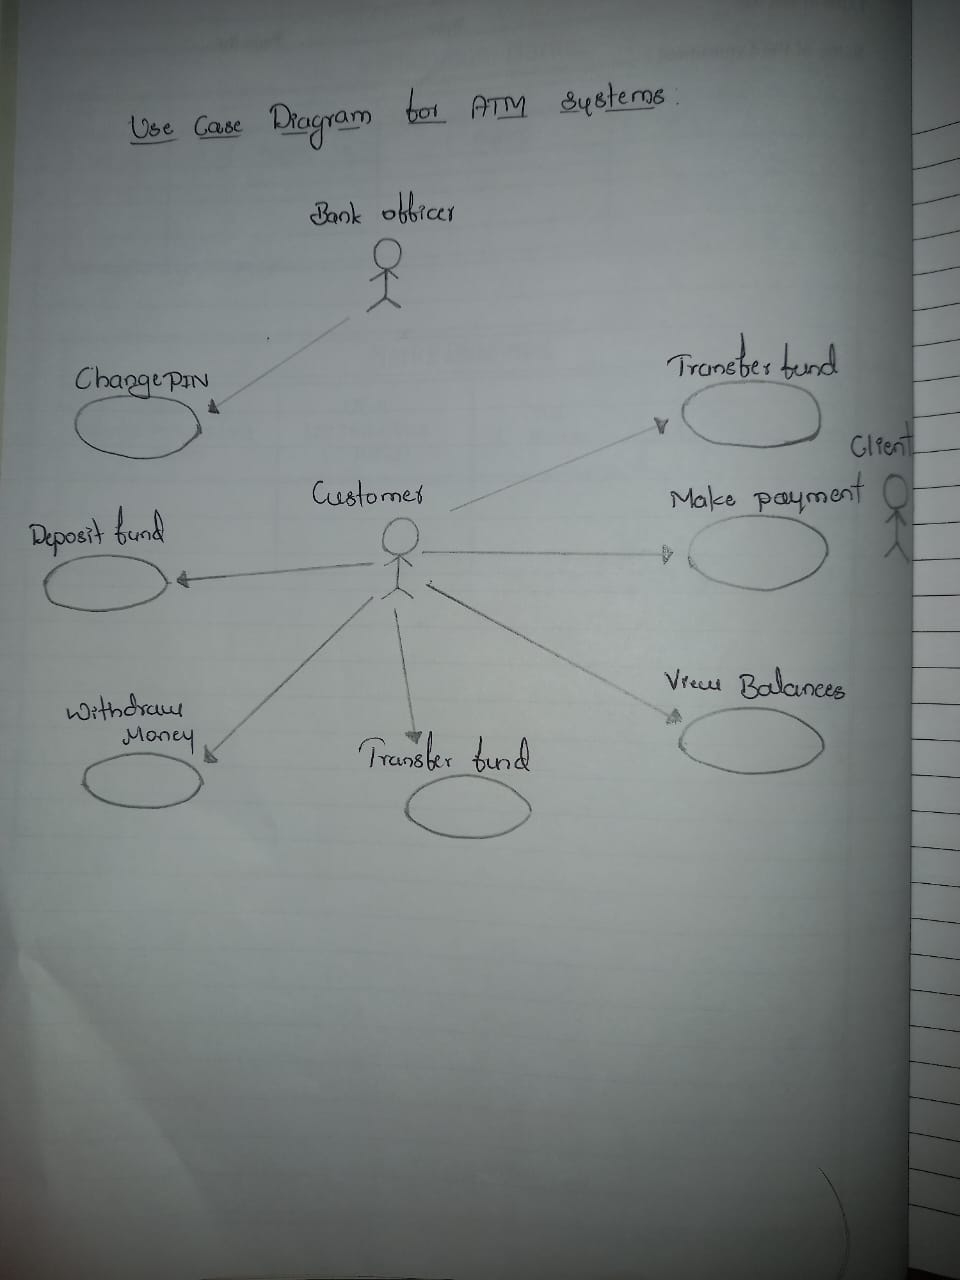 Use Case Diagram for ATM Systems.
Bank officer
Change PIN
Transfer fund
Client
Customer
Make payment
Deposit fund
View Balances
Withdraw
Money
Transfer fund